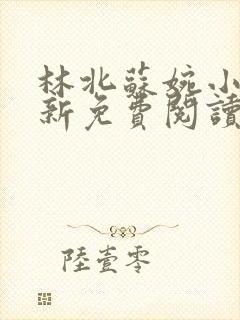 林北蘇婉小
新免費閱讀
陸壹零